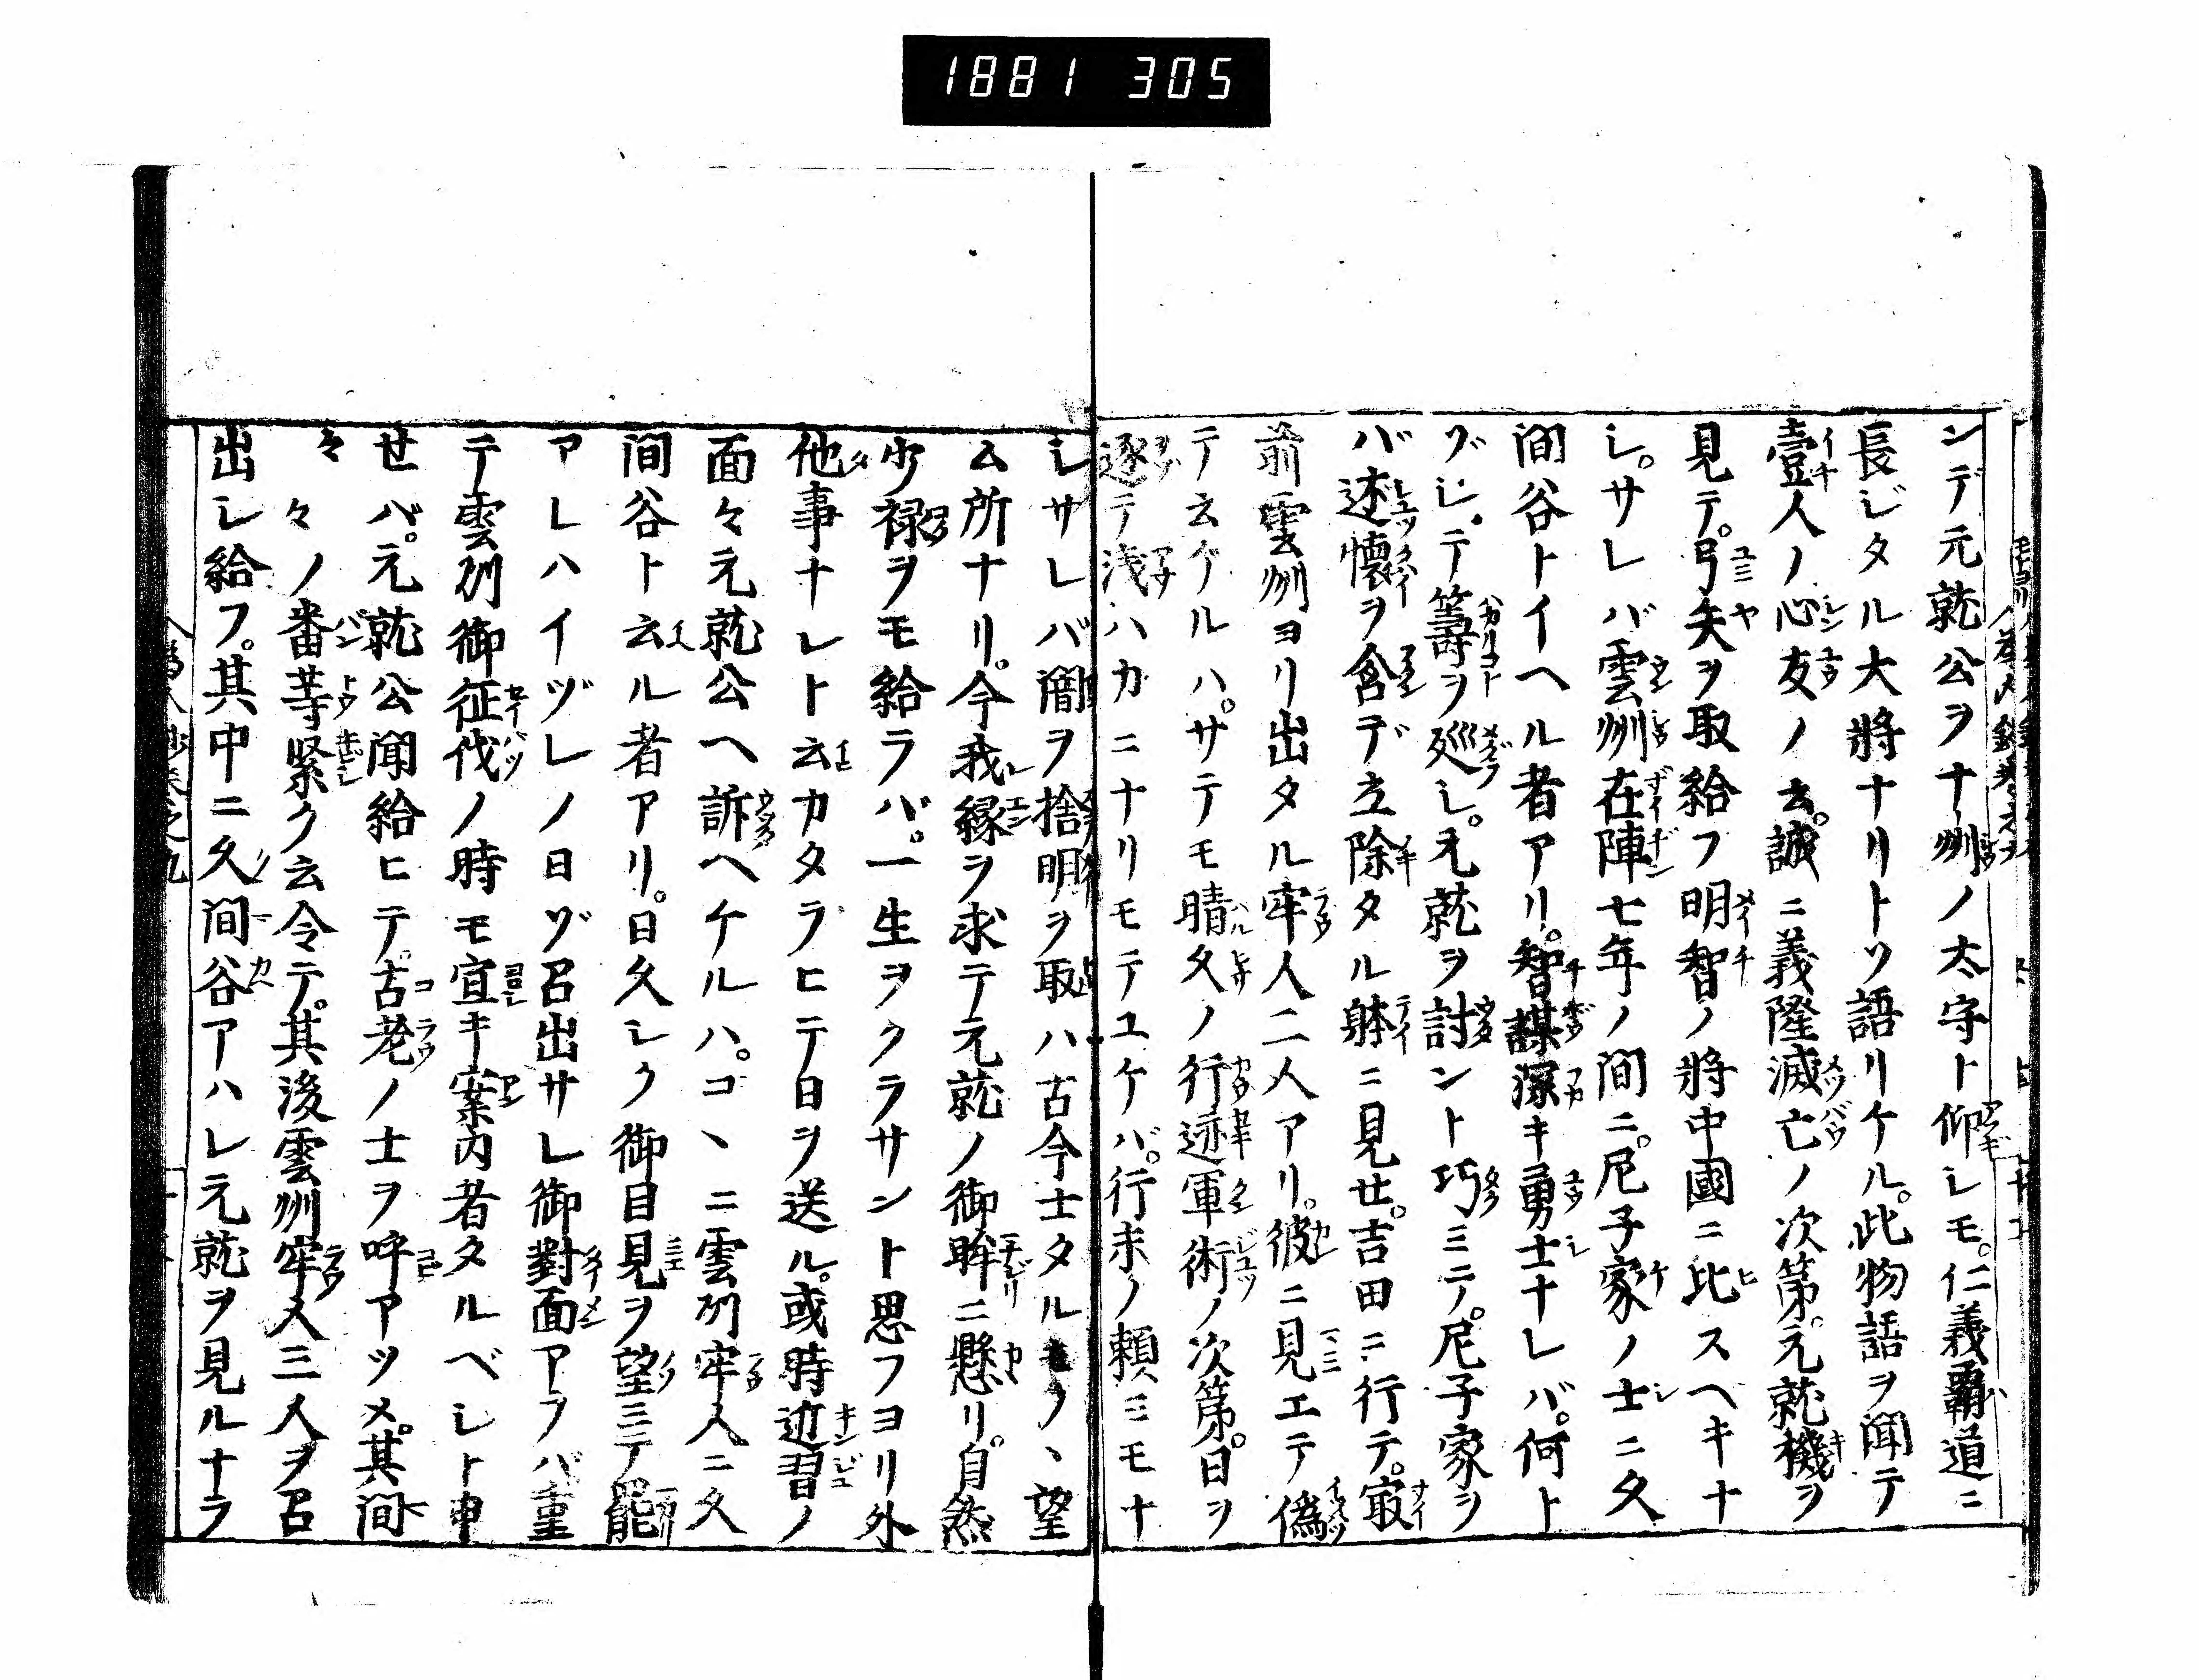 1881 305
ンデ元就公ヲ十州ノ太守ト仰レモ。仁義覇道ニ
長ジタル大將ナリトソ語リケル。此物語ヲ聞テ
壹人ノ心友ノ云。誠ニ義隆滅亡ノ次第。元就機ヲ
見テ。弓矢ヲ取給フ明智ノ將中國ニ比スヘキナ
シ。サレバ雲州在陣七年ノ間ニ。尼子家ノ士ニ久
間谷トイヘル者アリ。智謀深キ勇士ナレバ。何ト
ゾシテ籌ヲ廻シ。元就ヲ討ント巧ミテ。尼子家ヲ
バ述懐ヲ含デ立除タル躰ニ見せ。吉田ニ行テ。㝡
前雲州ヨリ出タル牢人二人アリ。彼ニ見エテ偽
テ云ケルハ。サテモ晴久ノ行迹軍術ノ次第。日ヲ
逐テ浅ハカニナリモテユケバ。行末ノ頼ミモナ
シサレバ闇ヲ捨明ヲ取ハ古今士タルモノヽ望
ム所ナリ。今我縁ヲ求テ元就ノ御眸ニ懸リ。自然
少禄ヲモ給ラバ。一生ヲクラサント思フヨリ外
他事ナレト云カタラヒテ日ヲ送ル。或時近習ノ
面々元就公ヘ訴ヘケルハ。コヽニ雲列牢人ニ久
間谷ト云ル者アリ。日久シク御目見ヲ望ミテ罷
アレハイヅレノ日ゾ召出サレ御對面アラバ重
テ雲州御征伐ノ時モ宜キ案内者タルベシト申
せバ。元就公聞給ヒテ。古老ノ士ヲ呼アツメ。其間
々々ノ番等緊ク云令テ。其後雲州牢人三人ヲ召
出シ給フ。其中ニ久間谷アハレ元就ヲ見ルナラ